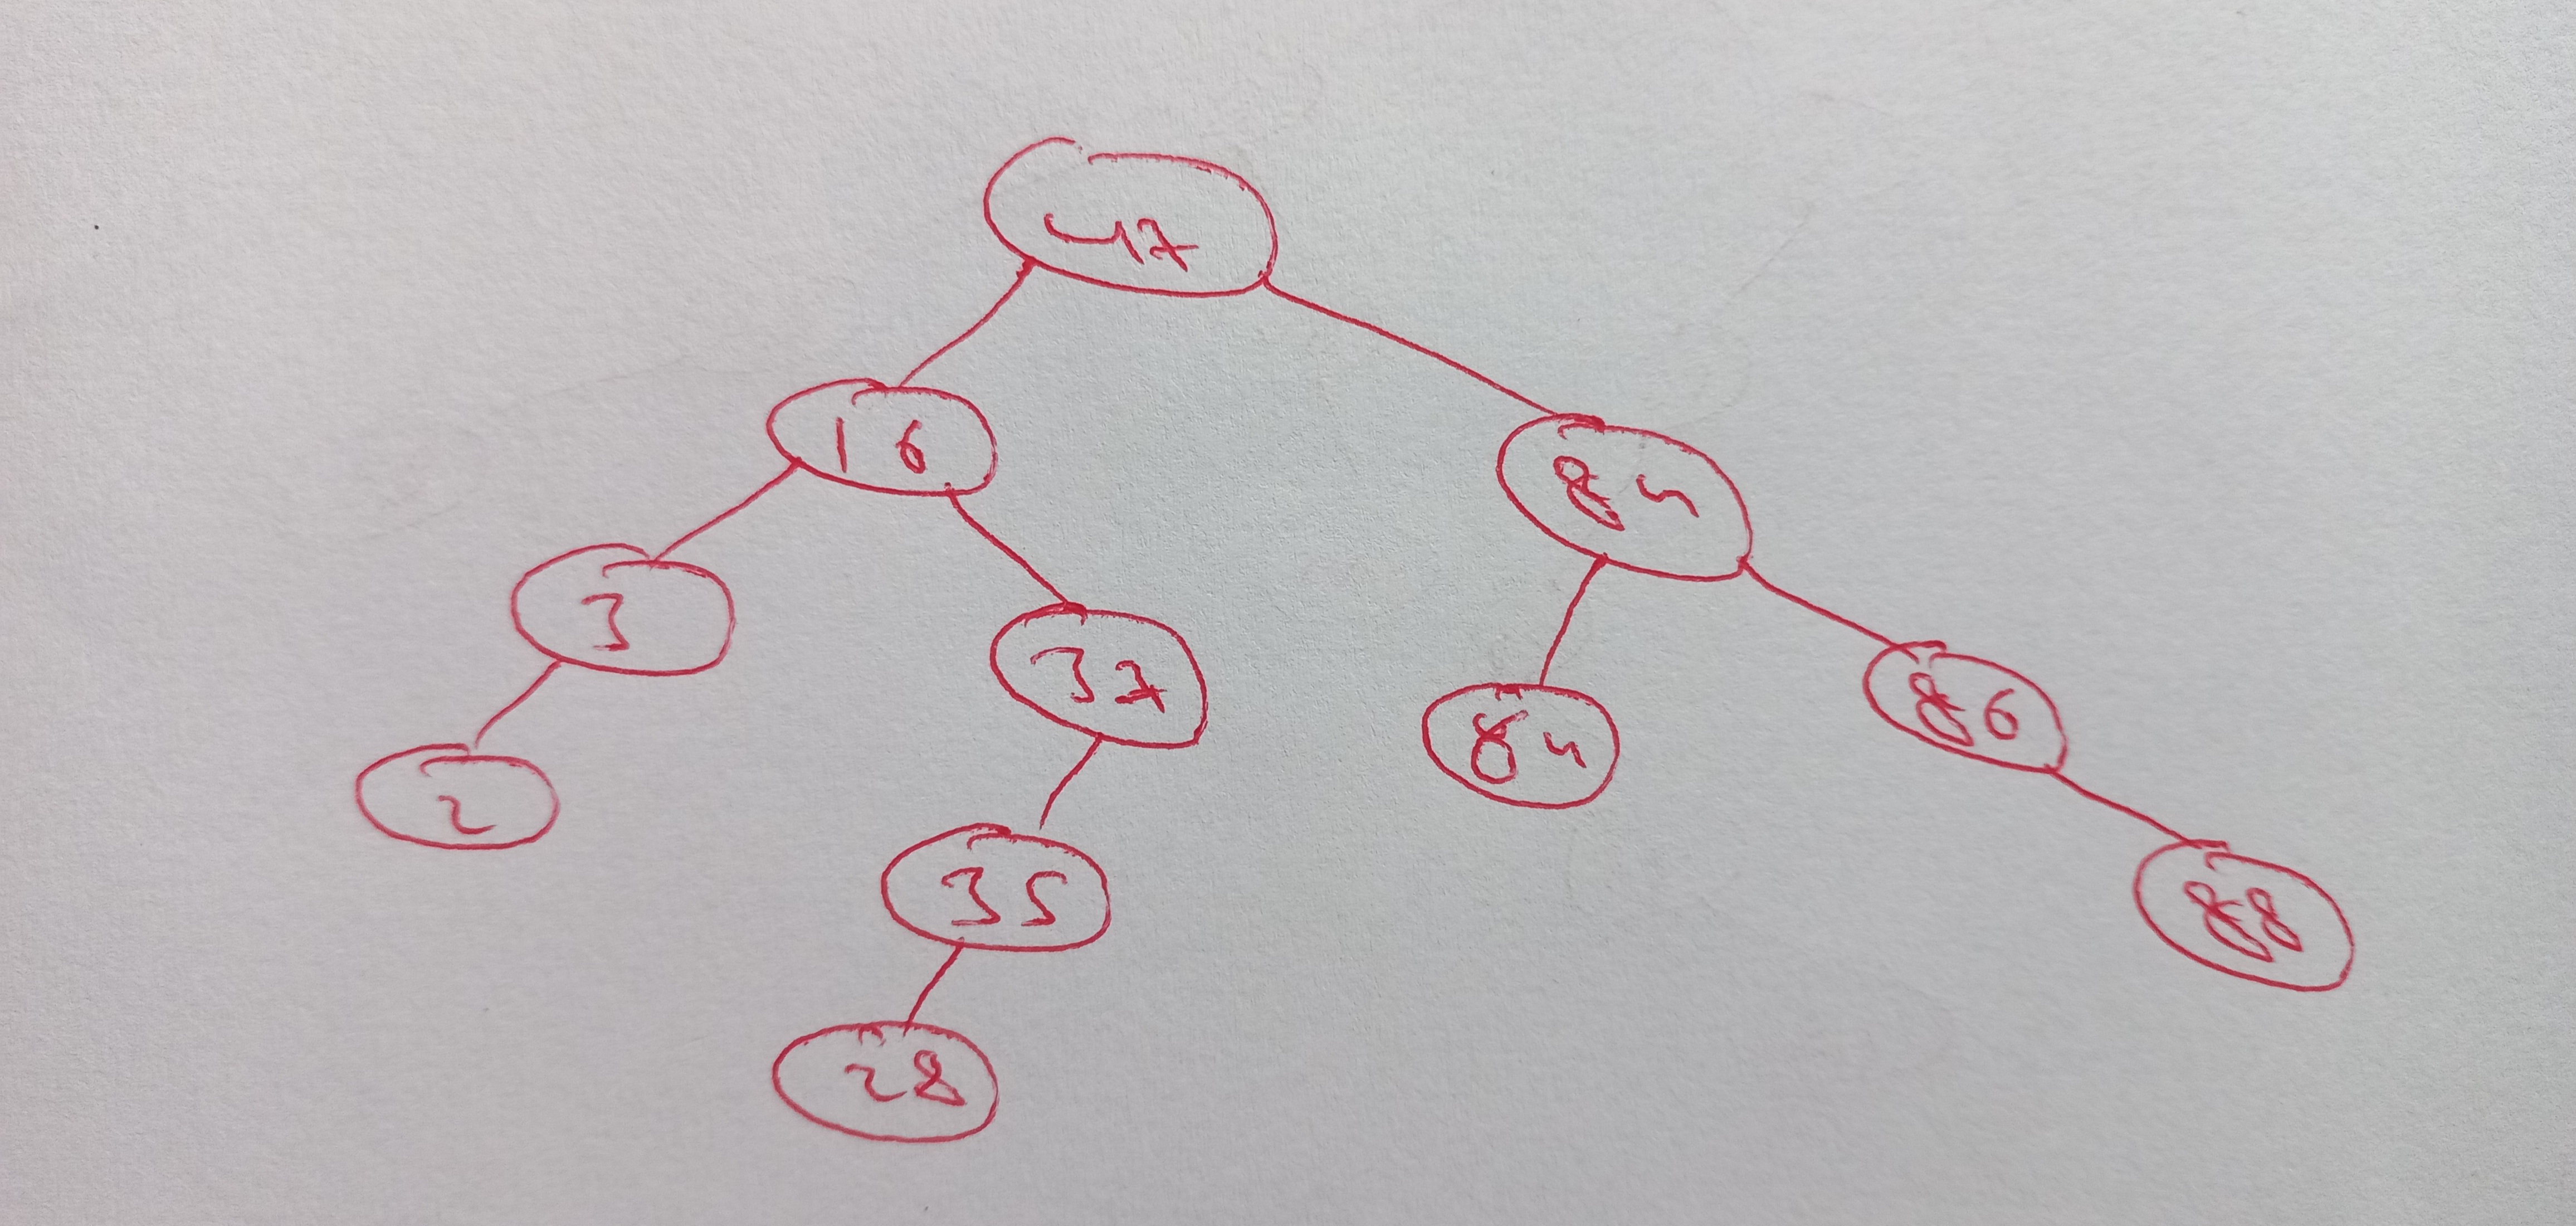 47
16
84
3
37
84
86
2
35
88
28